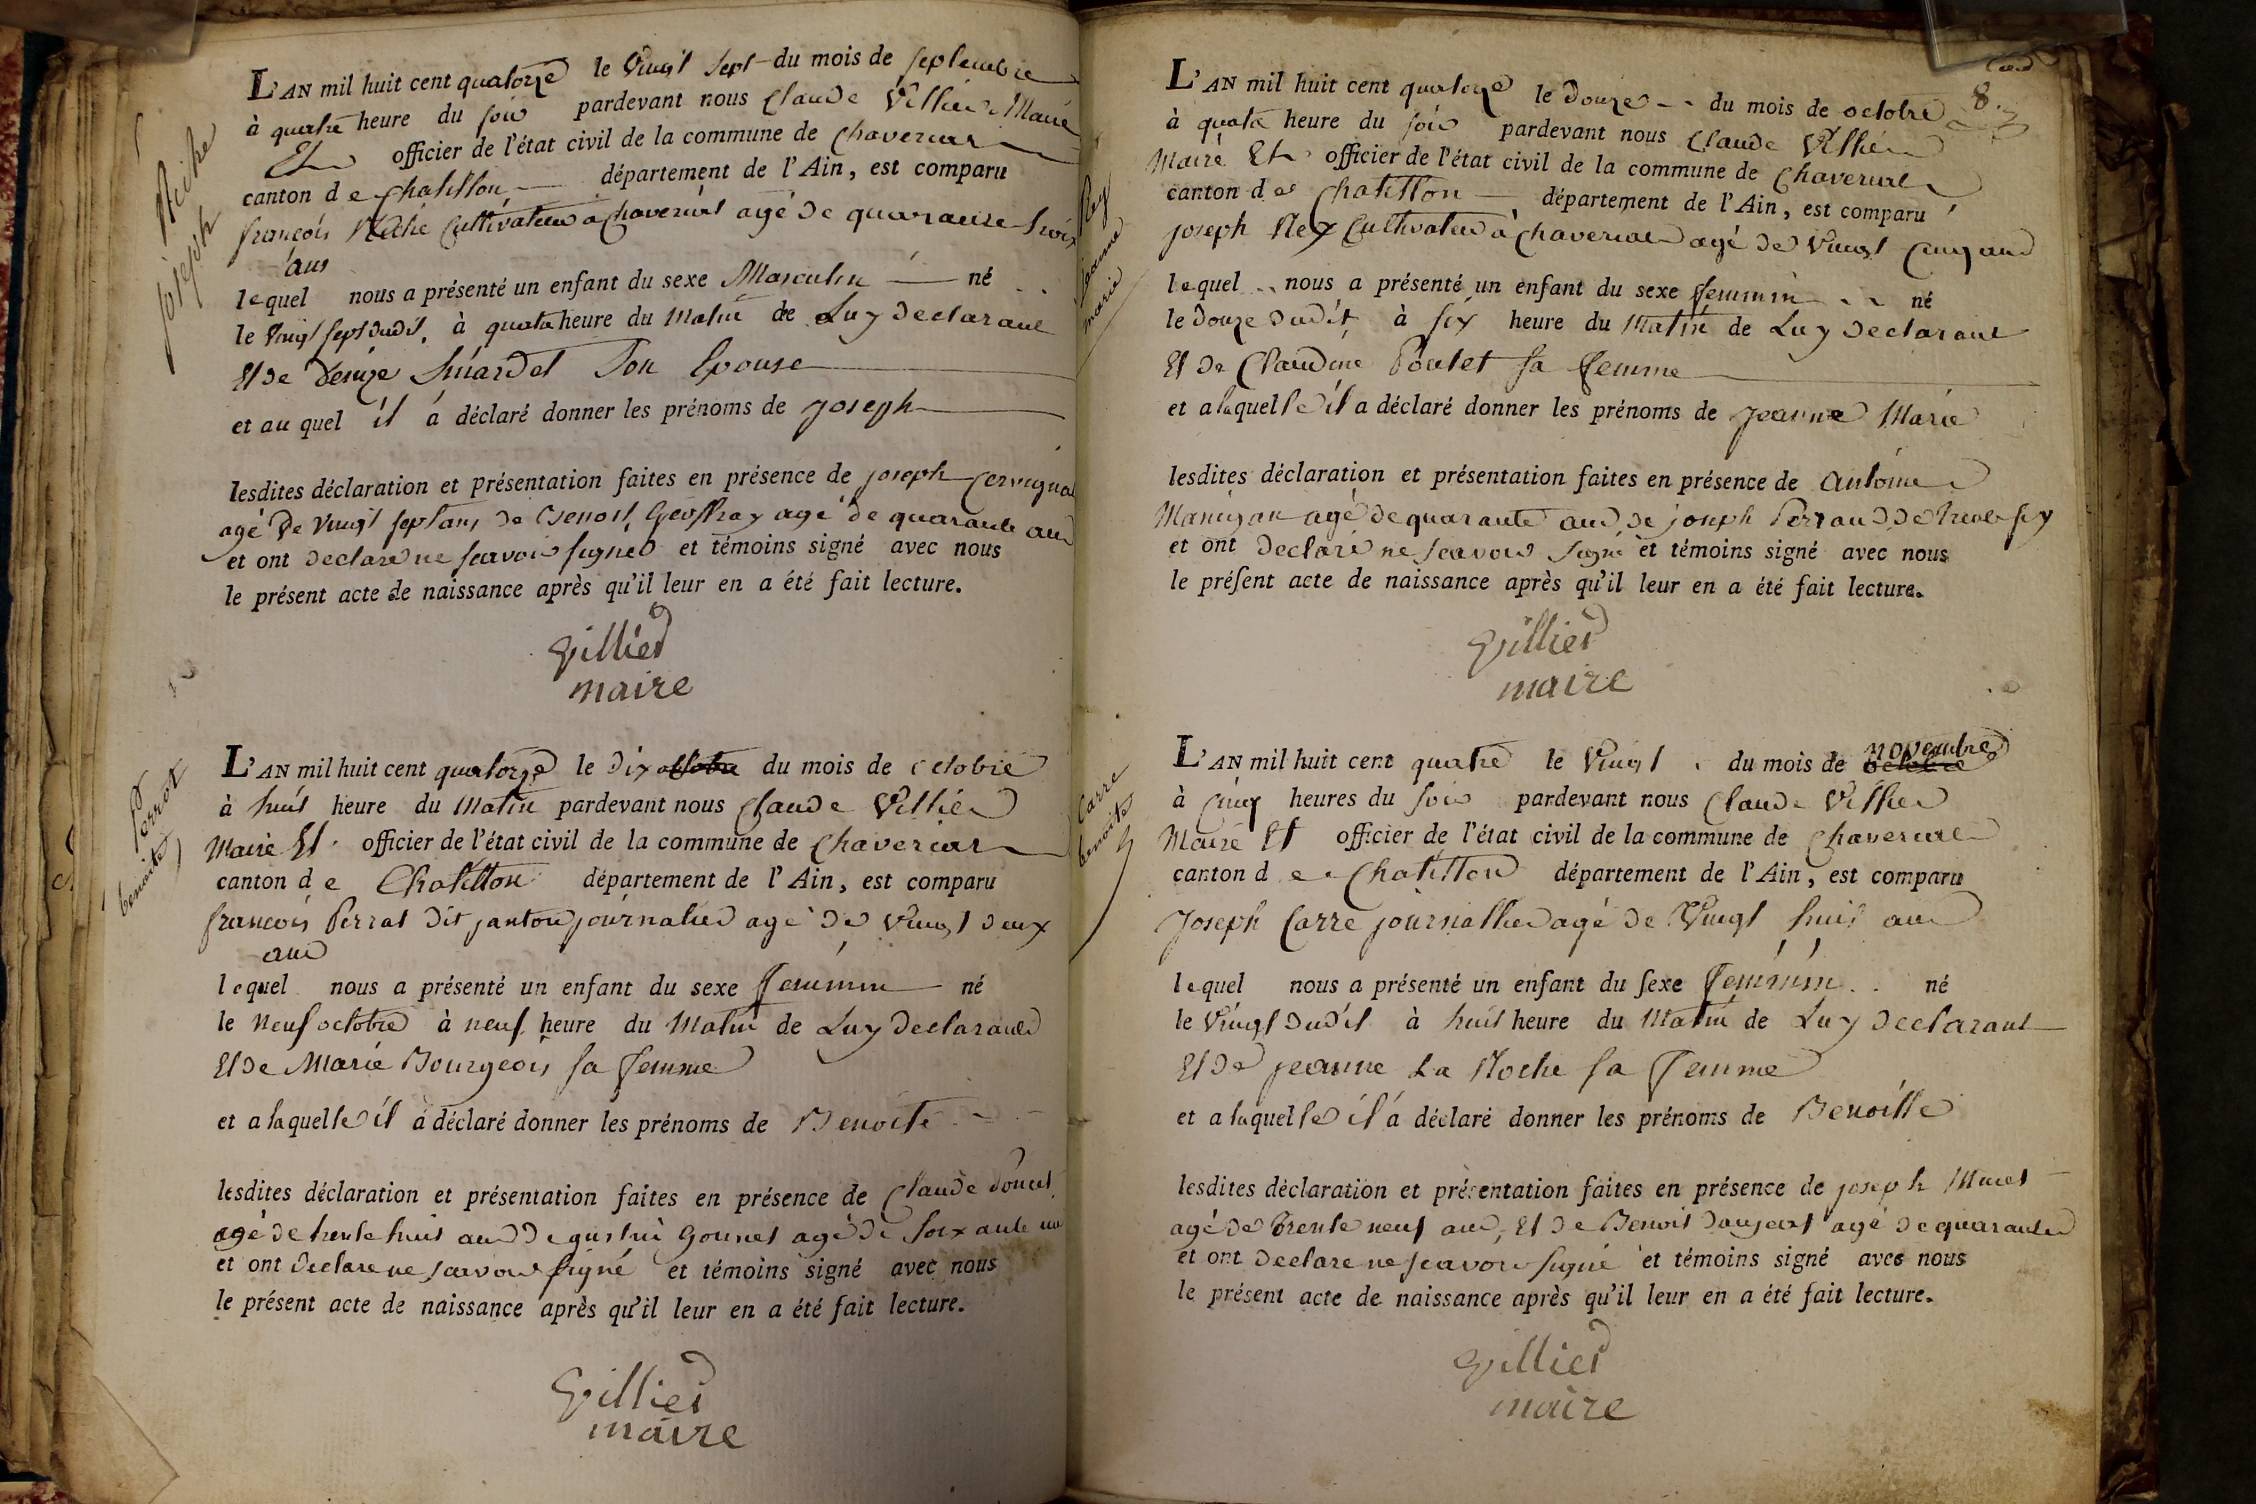 Reché
joseph
L'AN mil huit cent quatorze le Vingt sept du mois de septembre
à quatre heure du soir pardevant nous Claude Villier Maire
Et officier de l'état civil de la commune de Chaveriat
canton de Chatillon département de l'Ain, est comparu
françois Reché Cultivateur à Chaveriat agé de quarante trois
ans
lequel nous a présenté un enfant du sexe Masculin né
le Vingt sept dudit, à quatre heure du Matin de Luy declarant
Et de denize Son Epouse
et au quel il a déclaré donner les prénoms de joseph
lesdites déclaration et présentation faites en présence de joseph
agé De vingt sept ans de Benoit Geoffray agé de quarante ans
et ont declare ne scavoir signer et témoins signé avec nous
le présent acte de naissance après qu'il leur en a été fait lecture.
Villier
maire
perrat
benoite
L'AN mil huit cent quatorze le dix octobre du mois de octobre
à huit heure du Matin pardevant nous Claude Villier
Maire Et officier de l'état civil de la commune de Chaveriat
canton de Chatillon département de l'Ain, est comparu
françois Perrat dit janton journalier agé de Vingt deux
ans
lequel nous a présenté un enfant du sexe feminin né
le neuf octobre à neuf heure du Matin de Luy declarant
Et de Marie Bourgeois sa femme
et a laquelle il a déclaré donner les prénoms de Benoite
lesdites déclaration et présentation faites en présence de Claude
agé de trente huit ans De Gounet agé de soixante un
et ont declare ne scavoir signé et témoins signé avec nous
le présent acte de naissance après qu'il leur en a été fait lecture.
Villier
maire
8.
Rey
jeanne
marie
L'AN mil huit cent quatorze le douze du mois de octobre
à quatre heure du soir pardevant nous Claude Villier
Maire Et officier de l'état civil de la commune de Chaveriat
canton de Chatillon département de l'Ain, est comparu
joseph Rey Cultivateur à Chaveriat agé de Vingt cinq ans
lequel nous a présenté un enfant du sexe feminin né
le douze dudit, à six heure du Matin de Luy declarant
Et de Claudine Poulet sa femme
et a laquelle il a déclaré donner les prénoms de jeanne Marie
lesdites déclaration et présentation faites en présence de Antoine
agé de quarante ans de joseph Perraud de trente six
et ont declaré ne scavoir signé et témoins signé avec nous
le présent acte de naissance après qu'il leur en a été fait lecture.
Villier
maire
Carre
benoite
L'AN mil huit cent quatre le Vingt du mois de octobre novembre
à cinq heures du soir pardevant nous Claude Villier
Maire Et officier de l'état civil de la commune de Chaveriat
canton de Chatillon département de l'Ain, est comparu
Joseph Carre journallier agé de Vingt huit ans
lequel nous a présenté un enfant du sexe feminin né
le Vingt dudit à huit heure du Matin de Luy declarant
Et de jeanne La Roche sa femme
et a laquelle il a déclaré donner les prénoms de Benoitte
lesdites déclaration et présentation faites en présence de joseph
agé de trente neuf ans, Et de Benoit agé de quarante
et ont declare ne scavoir signé et témoins signé avec nous
le présent acte de naissance après qu'il leur en a été fait lecture.
Villier
maire